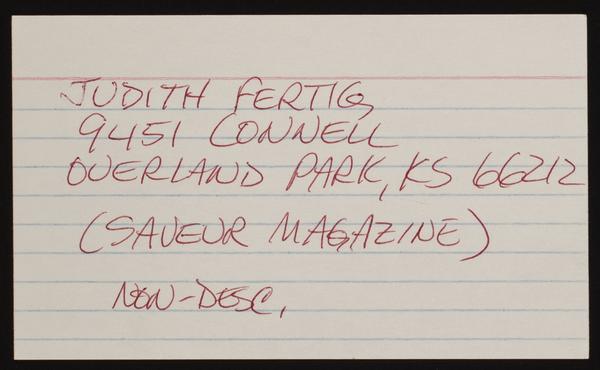 JUDITH FERTIG
9451 CONNELL
OVERLAND PARK, KS 66212
(SAVEUR MAGAZINE)
NON-DESC.